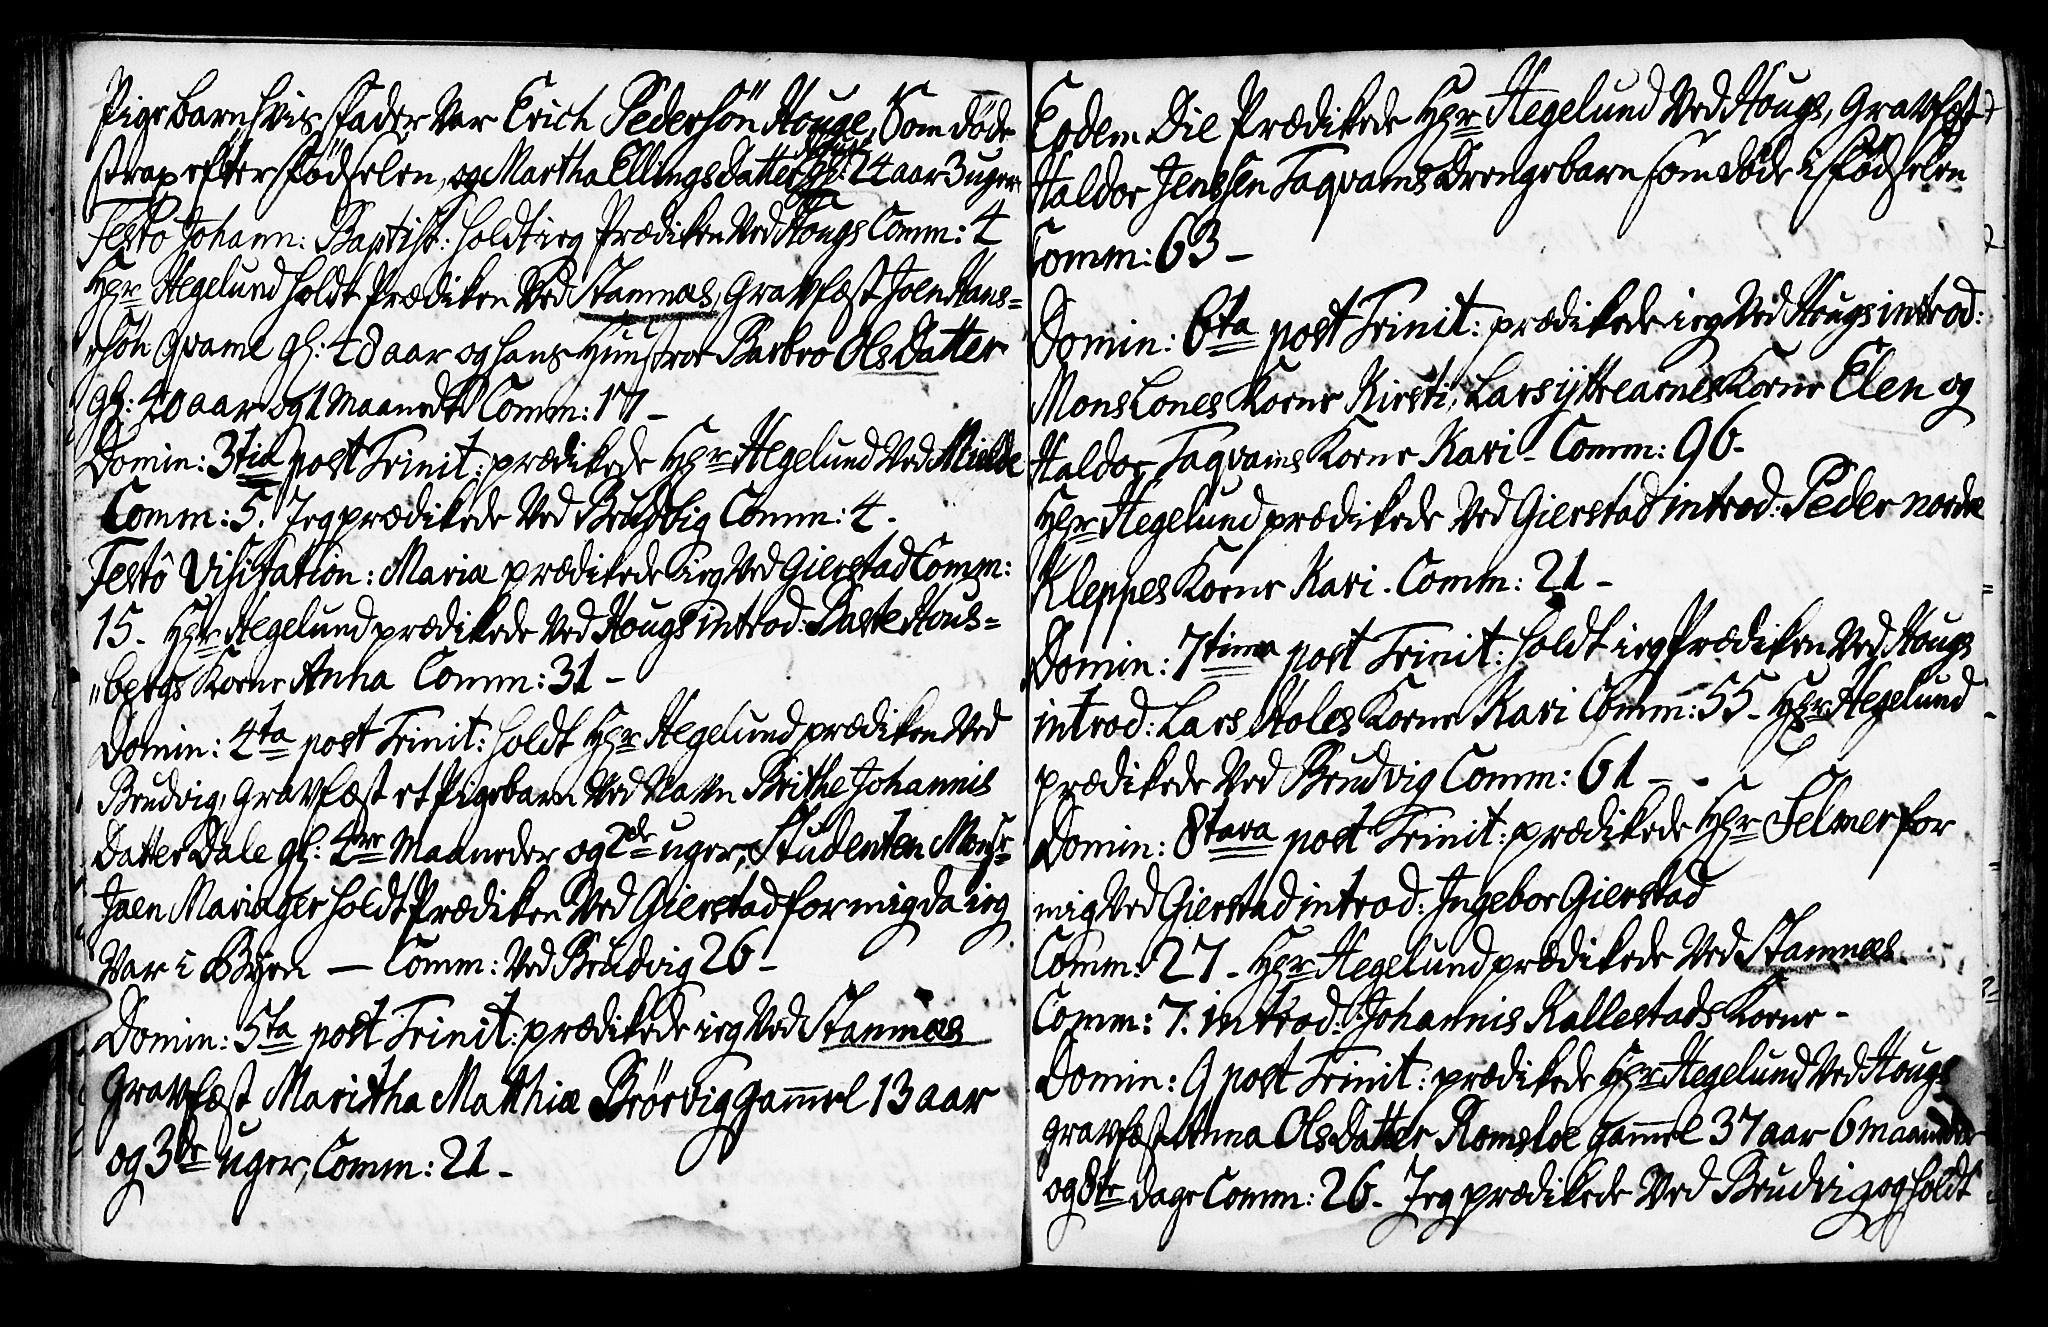 Pige barn hvis Fader Var Erich Pedersön Houge, Som döde
strax efter Födselen, og Martha Ellings datter gl: 24 aar 3 uger
Festo Johann: Baptist: holdt ieg Prædiken Ved Hougs Comm: 4
Hr Hegelund holdt Prædiken Ved Stamnæs, Gravfæst Joen Hans=
"sön Qvame gl: 48 aar og hans Hunstroe Barbro Ols Datter
gl: 40 aar og 1 Maanedt Comm: 17 -
Domin: 3tia post Trinit: prædikede Hr Hegelund Ved Mielde
Comm: 5. Jeg prædikede Ved Brudvig Comm: 4.
Festô Visitation: Mariæ prædikede ieg Ved Gierstad Comm:
15 - Hr Hegelund prædikede Ved Hougs introd: Hous=
"bergs Kone Anna Comm: 31 -
Domin: 4ta post Trinit: holdt Hr Hegelund prædiken Ved
Brudvig, Gravfæst et Pigebarn Ved Navn Brithe Johannis
Datter Dale gl: 4re Maaneder og 2de uger, Studenten Monsr
Joen Maringer holdt Prædiken Ved Gierstad for mig da ieg
Var i Byen — Comm: Ved Brudvig 26 -
Domin: 5ta post Trinit: prædikede ieg Ved Stamnæs
Gravfæst Maritha Matthiæ Brörvig gammel 13 aar
og 3de uger, Comm: 21 -
Eodem Die Prædikede Hr Hegelund Ved Hougs, Gravfæst
Haldor Jenssen Taqvams Drengebarn som döde i Födselen
Comm: 63 -
Domin: 6ta post Trinit: prædikede ieg Ved Hougs introd:
Mons Lones Kone Kirsti, Lars ÿttre arnes Kone Elen og
Haldor Taqvams Kone Kari - Comm: 96 -
Hr Hegelund prædikede Ved Gierstad introd: Peder nordre
Kleppes Kone Kari - Comm: 21 -
Domin: 7tima post Trinit: holdt ieg Prædiken Ved Hougs
introd: Lars Holes Kone Kari Comm: 55 - Hr Hegelund
prædikede Ved Brudvig Comm: 61 -
Domin: 8tava post Trinit: prædikede Hr Selmer for
mig Ved Gierstad introd: Ingebor Gierstad
Comm: 27 - Hr Hegelund prædikede Ved Stamnæs
Comm: 7. introd: Johannis Kallestads Kone -
Domin: 9 post Trinit: prædikede Hr Hegelund Ved Hougs
gravfæst Anna Ols Datter Romsloe gammel 37 aar 6 maaneder
og 8te dage Comm: 26 - Jeg prædikede Ved Brudvig og holdt